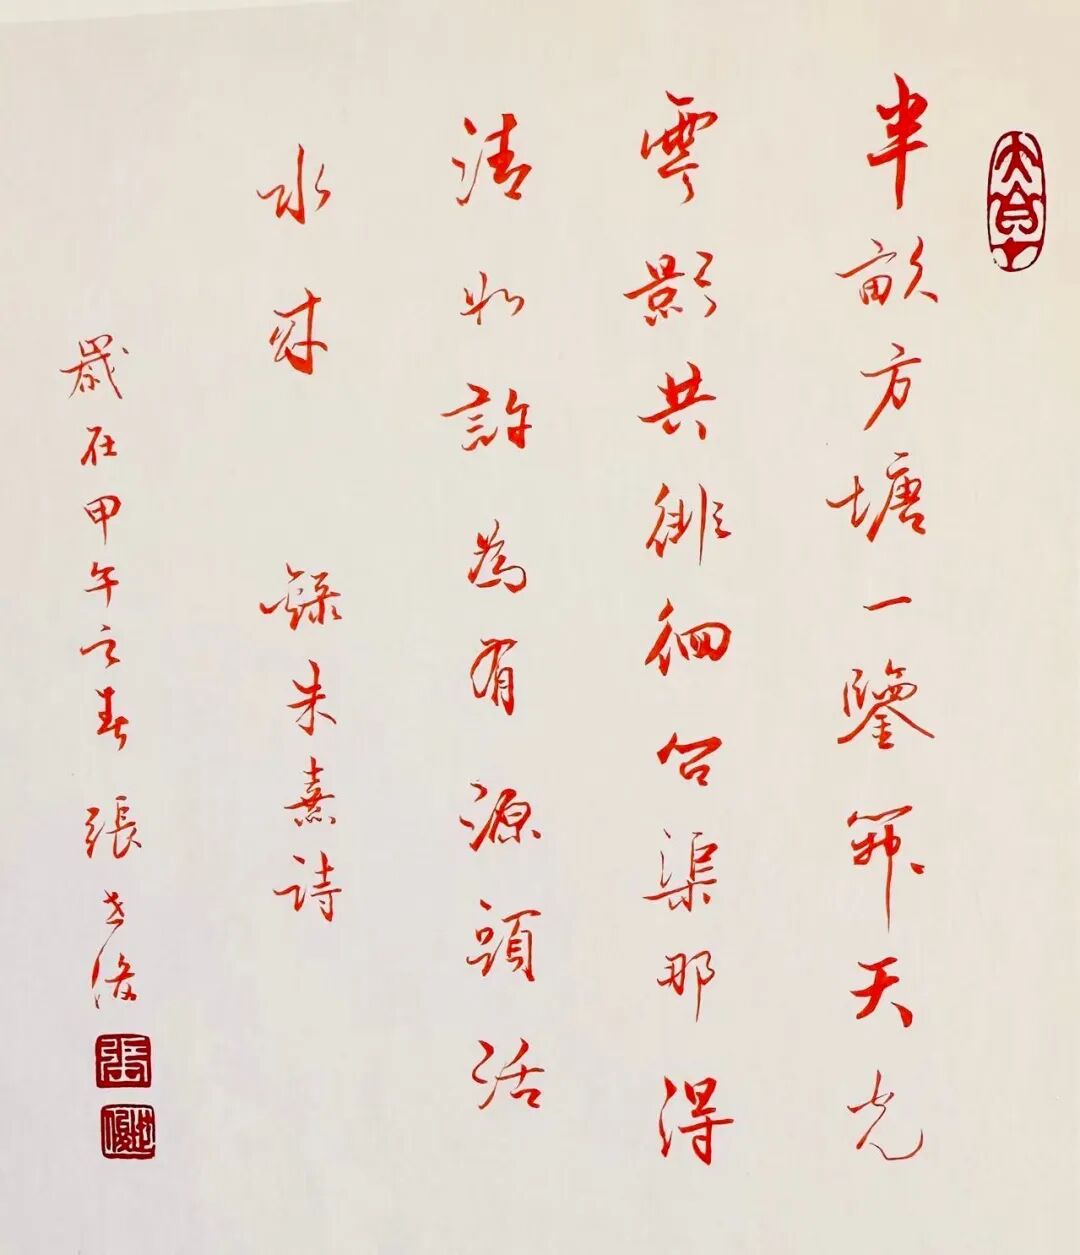 半畝方塘一鑒開天光
雲影共徘徊問渠那得
清如許為有源頭活
水來 錄朱熹詩
歲在甲午之春 張世俊